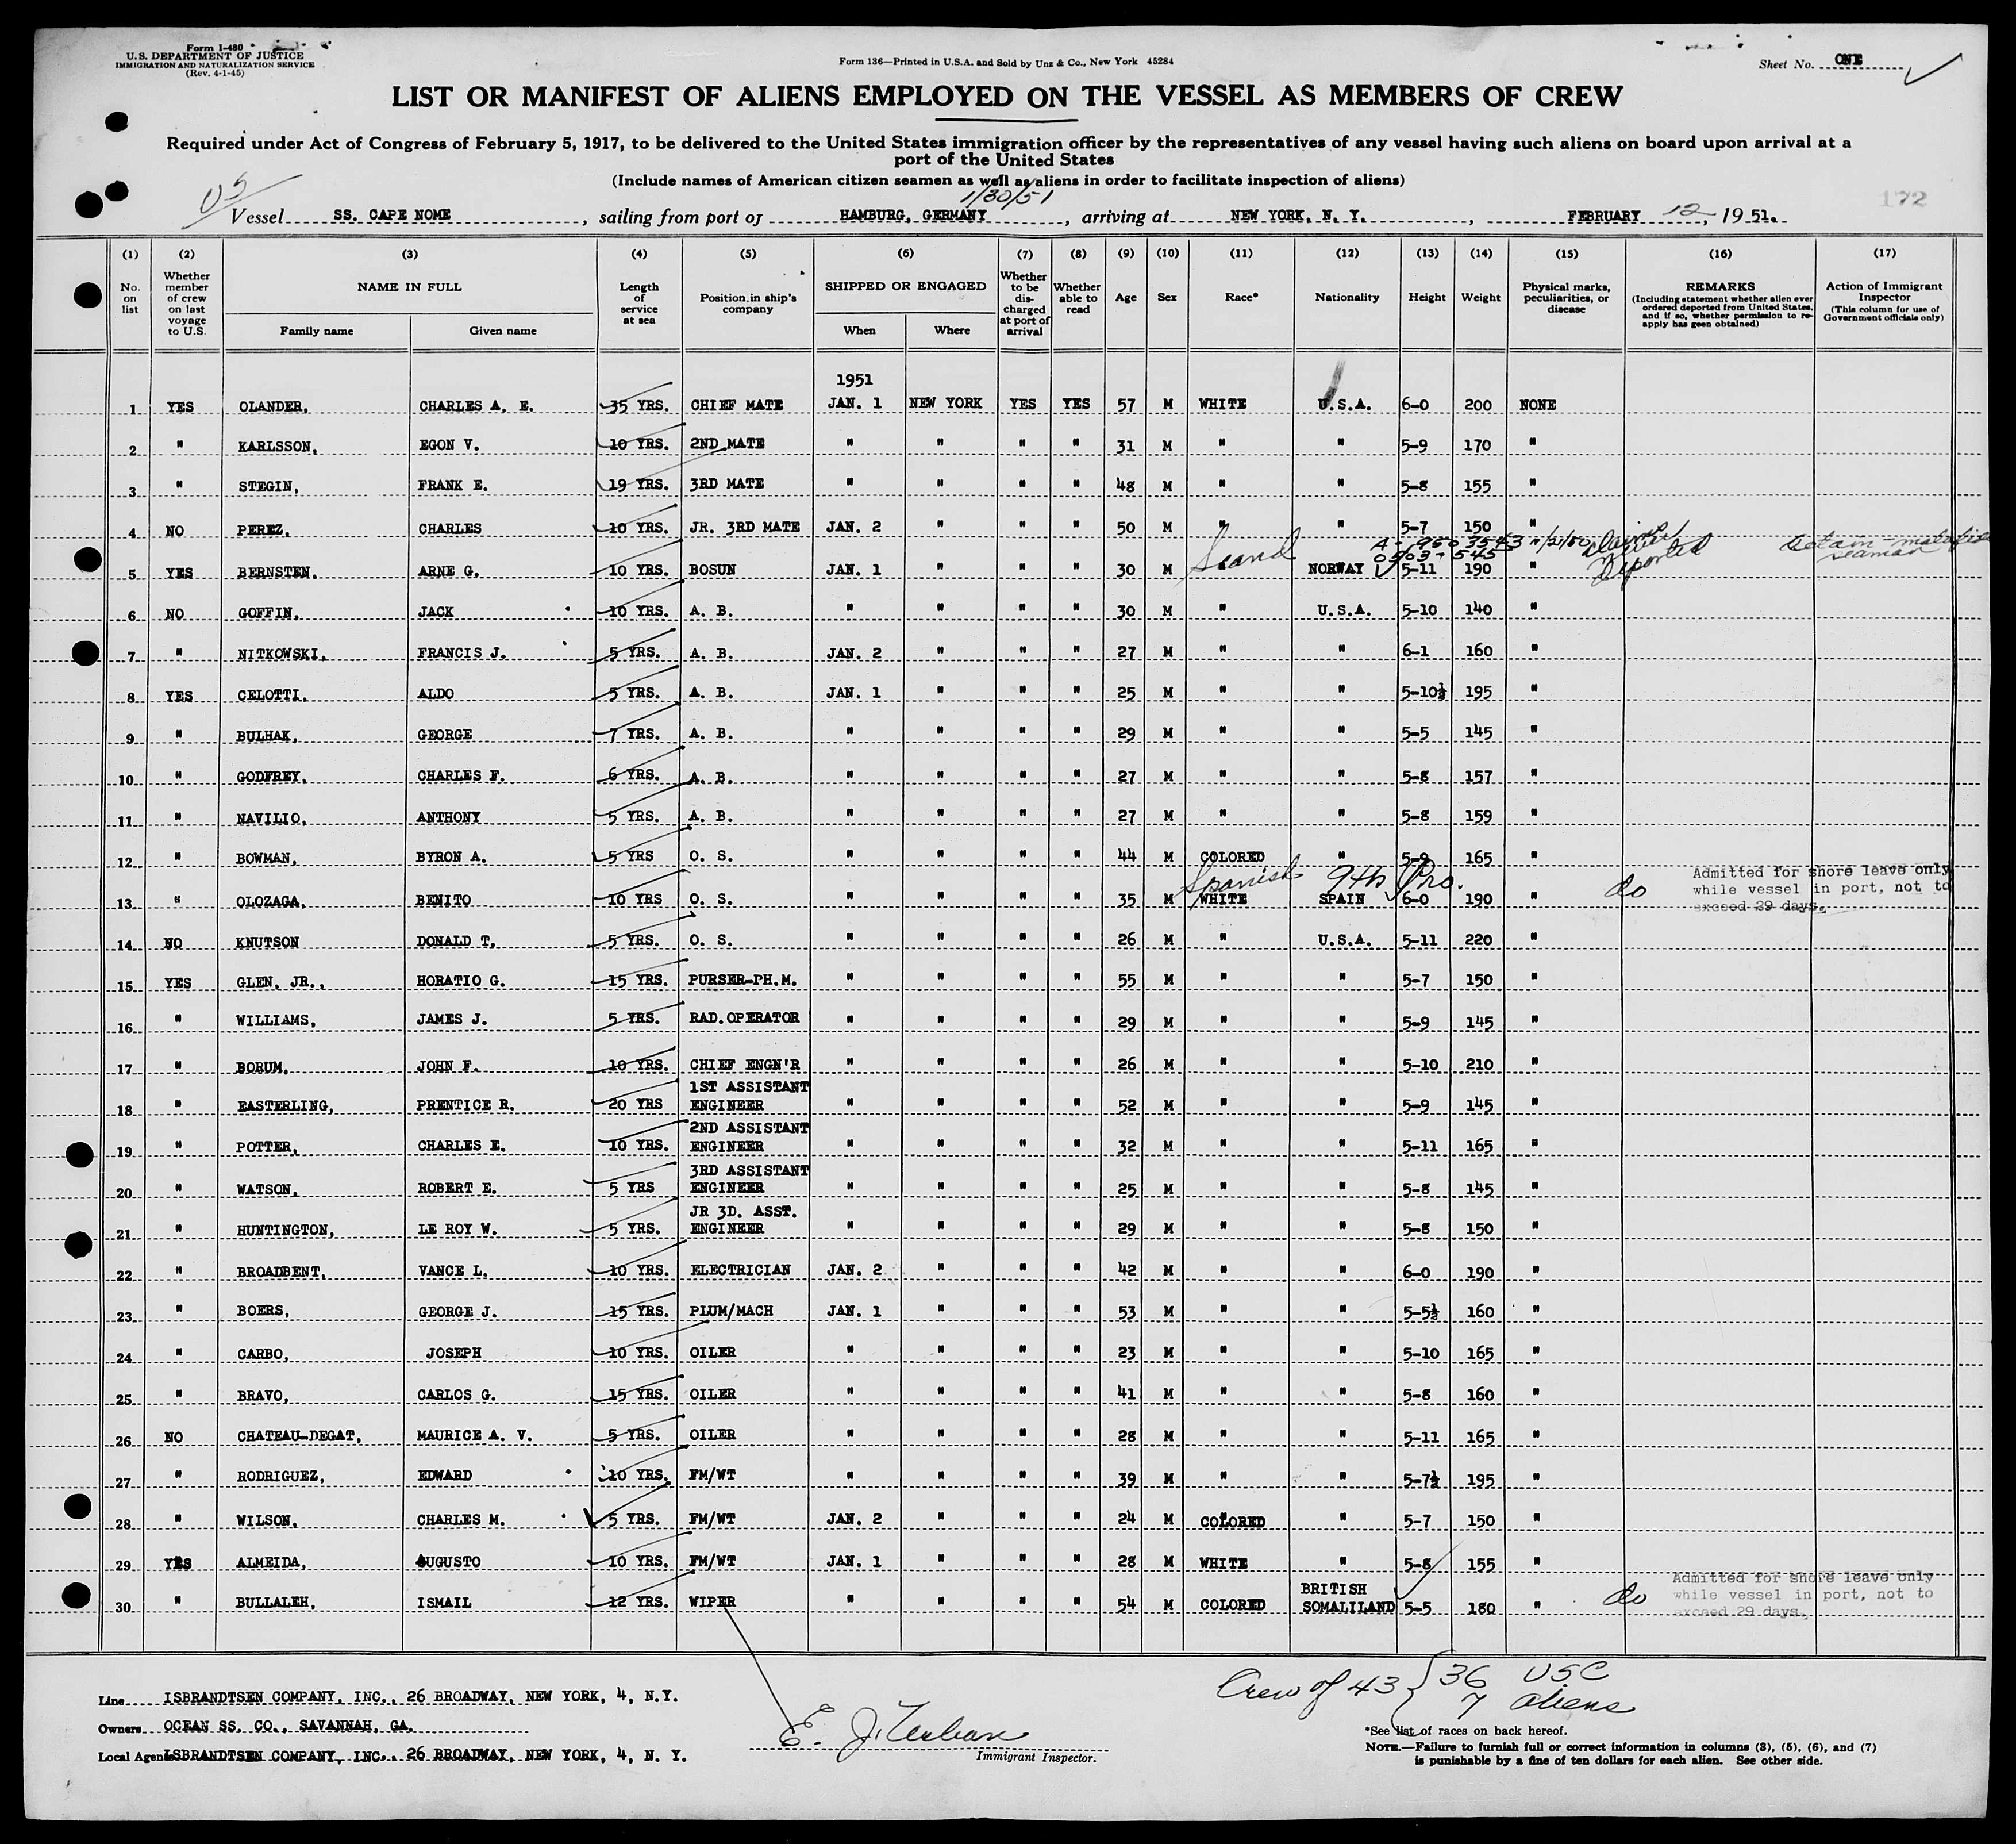 Form I-480
U.S. DEPARTMENT OF JUSTICE
IMMIGRATION AND NATURALIZATION SERVICE
(Rev. 4-1-45)
Form 136—Printed in U.S.A. and Sold by Unz & Co., New York 45284
Sheet No. ONE
LIST OR MANIFEST OF ALIENS EMPLOYED ON THE VESSEL AS MEMBERS OF CREW
Required under Act of Congress of February 5, 1917, to be delivered to the United States immigration officer by the representatives of any vessel having such aliens on board upon arrival at a
port of the United States
(Include names of American citizen seamen as well as aliens in order to facilitate inspection of aliens)
US
1/30/51
172
Vessel SS. CAPE NOME, sailing from port of HAMBURG, GERMANY, arriving at NEW YORK, N. Y., FEBRUARY 12, 1951.
(1) No. on list
(2) Whether member of crew on last voyage to U.S.
(3) NAME IN FULL Family name Given name
(4) Length of service at sea
(5) Position in ship's company
(6) SHIPPED OR ENGAGED When Where
(7) Whether to be discharged at port of arrival
(8) Whether able to read
(9) Age
(10) Sex
(11) Race*
(12) Nationality
(13) Height
(14) Weight
(15) Physical marks, peculiarities, or disease
(16) REMARKS (Including statement whether alien ever ordered deported from United States, and if so, whether permission to re-apply has geen obtained)
(17) Action of Immigrant Inspector (This column for use of Government officials only)
1951
1 YES OLANDER, CHARLES A. E. 35 YRS. CHIEF MATE JAN. 1 NEW YORK YES YES 57 M WHITE U.S.A. 6-0 200 NONE
2 " KARLSSON, EGON V. 10 YRS. 2ND MATE " " " " 31 M " " 5-9 170 "
3 " STEGIN, FRANK E. 19 YRS. 3RD MATE " " " " 48 M " " 5-8 155 "
4 NO PEREZ, CHARLES 10 YRS. JR. 3RD MATE JAN. 2 " " " 50 M " " 5-7 150 "
Scand 0503-545 Deported seaman
5 YES BERNSTEN, ARNE G. 10 YRS. BOSUN JAN. 1 " " " 30 M NORWAY 5-11 190 "
6 NO GOFFIN, JACK 10 YRS. A. B. " " " " 30 M " U.S.A. 5-10 140 "
7 " NITKOWSKI, FRANCIS J. 5 YRS. A. B. JAN. 2 " " " 27 M " " 6-1 160 "
8 YES CELOTTI, ALDO 5 YRS. A. B. JAN. 1 " " " 25 M " " 5-10½ 195 "
9 " BULHAK, GEORGE 7 YRS. A. B. " " " " 29 M " " 5-5 145 "
10 " GODFREY, CHARLES F. 6 YRS. A. B. " " " " 27 M " " 5-8 157 "
11 " NAVILIO, ANTHONY 5 YRS. A. B. " " " " 27 M " " 5-8 159 "
12 " BOWMAN, BYRON A. 5 YRS O. S. " " " " 44 M COLORED " 5-9 165 "
Spanish 9th Pro.
13 " OLOZAGA, BENITO 10 YRS O. S. " " " " 35 M WHITE SPAIN 6-0 190 " do Admitted for shore leave only while vessel in port, not to exceed 29 days.
14 NO KNUTSON DONALD T. 5 YRS. O. S. " " " " 26 M " U.S.A. 5-11 220 "
15 YES GLEN, JR., HORATIO G. 15 YRS. PURSER-PH.M. " " " " 55 M " " 5-7 150 "
16 " WILLIAMS, JAMES J. 5 YRS. RAD.OPERATOR " " " " 29 M " " 5-9 145 "
17 " BORUM, JOHN F. 10 YRS. CHIEF ENGN'R " " " " 26 M " " 5-10 210 "
18 " EASTERLING, PRENTICE R. 20 YRS 1ST ASSISTANT ENGINEER " " " " 52 M " " 5-9 145 "
19 " POTTER, CHARLES E. 10 YRS. 2ND ASSISTANT ENGINEER " " " " 32 M " " 5-11 165 "
20 " WATSON, ROBERT E. 5 YRS 3RD ASSISTANT ENGINEER " " " " 25 M " " 5-8 145 "
21 " HUNTINGTON, LE ROY W. 5 YRS. JR 3D. ASST. ENGINEER " " " " 29 M " " 5-8 150 "
22 " BROADBENT, VANCE L. 10 YRS. ELECTRICIAN JAN. 2 " " " 42 M " " 6-0 190 "
23 " BOERS, GEORGE J. 15 YRS. PLUM/MACH JAN. 1 " " " 53 M " " 5-5½ 160 "
24 " CARBO, JOSEPH 10 YRS. OILER " " " " 23 M " " 5-10 165 "
25 " BRAVO, CARLOS G. 15 YRS. OILER " " " " 41 M " " 5-8 160 "
26 NO CHATEAU-DEGAT, MAURICE A. V. 5 YRS. OILER " " " " 28 M " " 5-11 165 "
27 " RODRIGUEZ, EDWARD 10 YRS. FM/WT " " " " 39 M " " 5-7½ 195 "
28 " WILSON, CHARLES M. 5 YRS. FM/WT JAN. 2 " " " 24 M COLORED " 5-7 150 "
29 YES ALMEIDA, AUGUSTO 10 YRS. FM/WT JAN. 1 " " " 28 M WHITE " 5-8 155 "
30 " BULLALEH, ISMAIL 12 YRS. WIPER " " " " 54 M COLORED BRITISH SOMALILAND 5-5 180 " do Admitted for shore leave only while vessel in port, not to exceed 29 days.
Crew of 43 { 36 USC
7 aliens
Line ISBRANDTSEN COMPANY, INC., 26 BROADWAY, NEW YORK, 4, N.Y.
Owners OCEAN SS. CO., SAVANNAH, GA.
Local Agents ISBRANDTSEN COMPANY, INC., 26 BROADWAY, NEW YORK, 4, N. Y.
E. J.
Immigrant Inspector.
*See list of races on back hereof.
NOTE.—Failure to furnish full or correct information in columns (3), (5), (6), and (7)
is punishable by a fine of ten dollars for each alien. See other side.